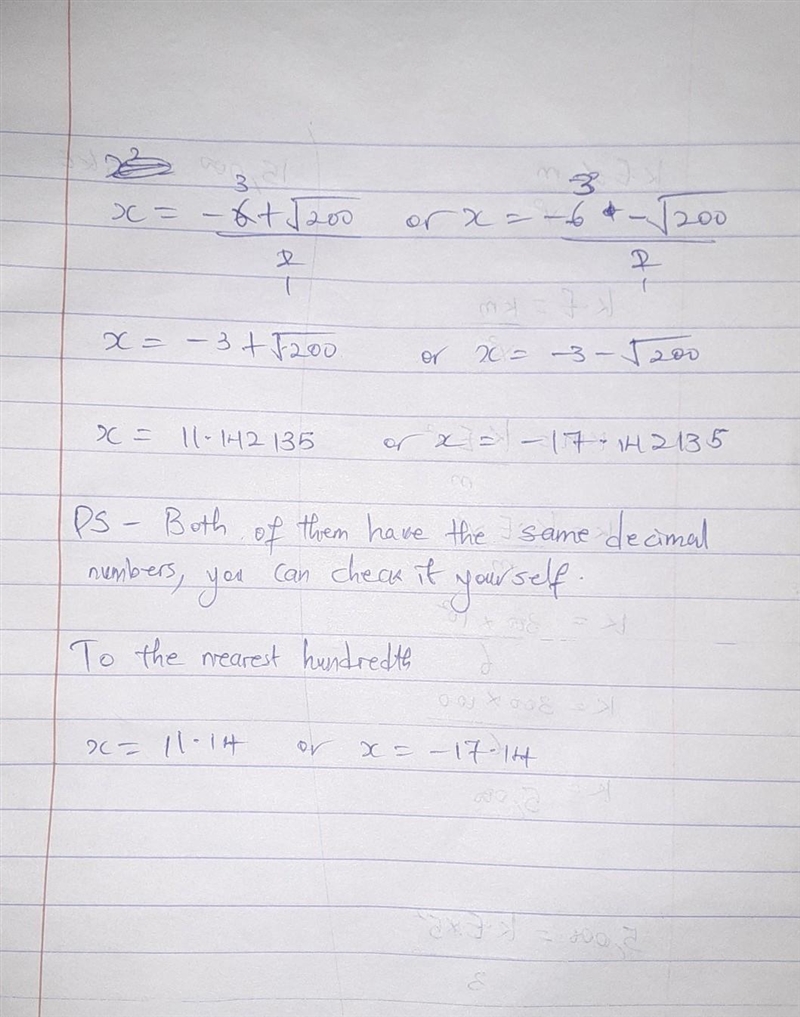 x²
3 3
x = -6+√200 or x = -6 - √200
2 2
1 1
x = -3+√200 or x = -3-√200
x = 11.142135 or x = -17.142135
PS - Both of them have the same decimal
numbers, you can check it yourself.
To the nearest hundredth
x = 11.14 or x = -17.14